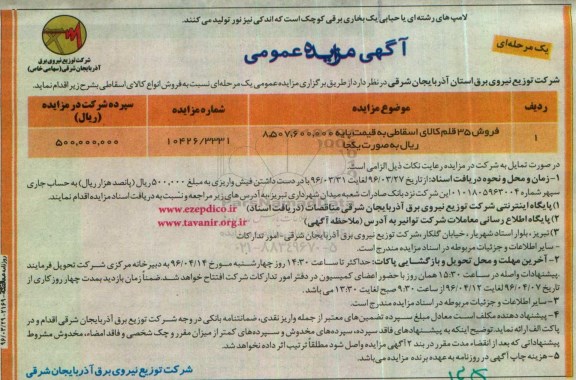 لامپ های رشته ای یا حبابی یک بخاری برقی کوچک است که اندکی نیز نور تولید می کنند.
یک مرحله ای
آگهی مزایده عمومی
شرکت توزیع نیروی برق
آذربایجان شرقی (سهامی خاص)
شرکت توزیع نیروی برق استان آذربایجان شرقی در نظر دارد از طریق برگزاری مزایده عمومی یک مرحله ای نسبت به فروش انواع کالای اسقاطی بشرح زیر اقدام نماید.
ردیف
موضوع مزایده
شماره مزایده
سپرده شرکت در مزایده
(ریال)
۱
فروش ۳۵ قلم کالای اسقاطی به قیمت پایه ۸،۵۰۷،۶۰۰،۰۰۰
ریال به صورت یکجا
۱۰۴۲۶/۳۳۳۱
۵۰۰،۰۰۰،۰۰۰
در صورت تمایل به شرکت در مزایده رعایت نکات ذیل الزامی است.
۱-زمان و محل و نحوه دریافت اسناد: از تاریخ ۹۶/۰۳/۲۷ لغایت ۹۶/۰۳/۳۱ با در دست داشتن فیش واریزی به مبلغ ۵۰۰،۰۰۰ ریال (پانصد هزار ریال) به حساب جاری
سپهر شماره ۰۱۰۱۸۰۵۹۶۳۰۰۴ این شرکت نزد بانک صادرات شعبه میدان شهرداری تبریز به آدرس های زیر مراجعه و نسبت به دریافت اسناد مزایده اقدام نمایند.
۱) پایگاه اینترنتی شرکت توزیع نیروی برق آذربایجان شرقی مناقصات (دریافت اسناد) www.ezepdico.ir
۲) پایگاه اطلاع رسانی معاملات شرکت توانیر به آدرس (ملاحظه آگهی) www.tavanir.org.ir
۳) تبریز، بلوار استاد شهریار، خیابان گلکار، شرکت توزیع نیروی برق آذربایجان شرقی-امور تدارکات
- سایر اطلاعات و جزئیات مربوطه در اسناد مزایده مندرج است.
۲-آخرین مهلت و محل تحویل و بازگشایی پاکات: حداکثر تا ساعت ۱۴:۳۰ روز چهارشنبه مورخ ۹۶/۰۴/۱۴ به دبیرخانه مرکزی شرکت تحویل فرمایند
پیشنهادات واصله در ساعت ۱۵:۳۰ همان روز با حضور اعضای کمیسیون در دفتر امور تدارکات شرکت افتتاح خواهد شد. ضمناً زمان بازدید بمدت چهار روز کاری از
تاریخ ۹۶/۰۴/۰۷ لغایت ۹۶/۰۴/۱۲ از ساعت ۹:۳۰ صبح لغایت ۱۳:۳۰ می باشد.
۳-سایر اطلاعات و جزئیات مربوطه در اسناد مزایده مندرج است.
۴-پیشنهاد دهنده مکلف است معادل مبلغ سپرده تضمین های معتبر از جمله واریز نقدی، ضمانتنامه بانکی در وجه شرکت توزیع برق آذربایجان شرقی اقدام و در
پاکت الف ارائه نماید. توضیح اینکه به پیشنهادهای فاقد سپرده، سپرده های مخدوش و سپرده های کمتر از میزان مقرر و چک شخصی و فاقد امضاء، مخدوش مشروط
پیشنهاداتی که بعد از انقضاء مدت مقرر در بند ۲ آگهی مزایده واصل شود مطلقاً ترتیب اثر داده نخواهد شد.
۵-هزینه چاپ آگهی در روزنامه به عهده برنده مزایده می باشد.
شرکت توزیع نیروی برق آذربایجان شرقی